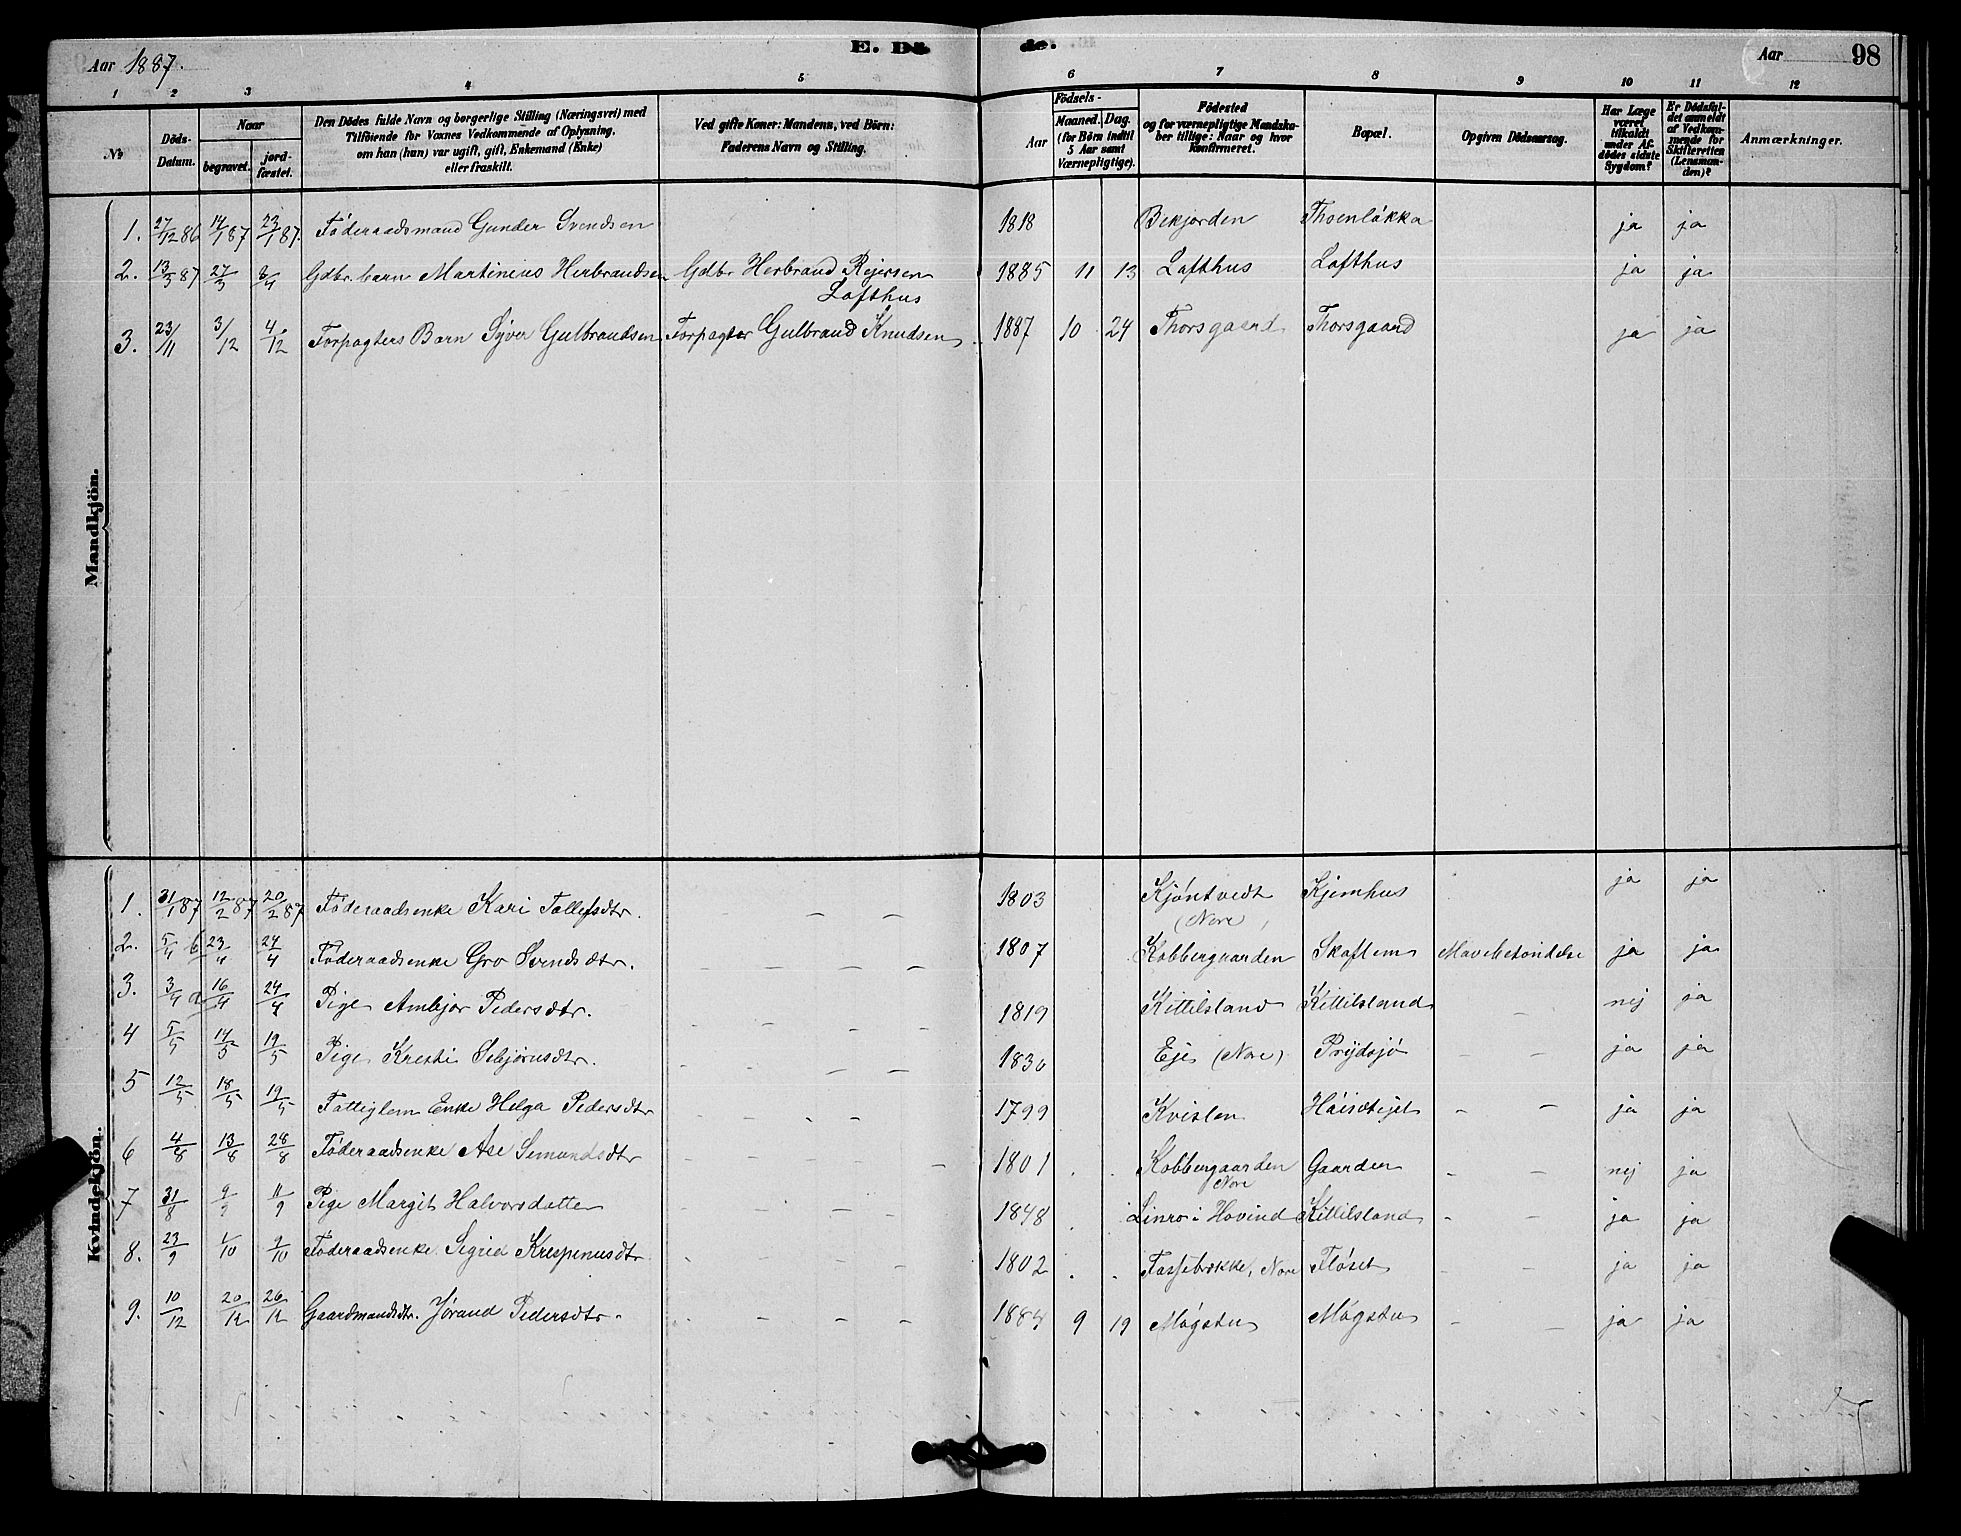 Aar 1887.
E. Dö
de.
Aar
98
1 2 3 4 5 6 7 8 9 10 11 12
No
Döds-
Datum.
Naar
begravet.
jord-
fæstet.
Den Dödes fulde Navn og borgerlige Stilling (Næringsvei) med
Tilföiende for Voxnes Vedkommende af Oplysning,
om han (hun) var ugift, gift, Enkemand (Enke)
eller fraskilt.
Ved gifte Koner: Mandens, ved Börn:
Faderens Navn og Stilling.
Födsels-
Aar
Maaned.
Dag.
(for Börn indtil
5 Aar samt
Værnepligtige).
Födested
og for værnepligtige Mandska-
ber tillige: Naar og hvor
konfirmeret.
Bopæl.
Opgiven Dödsaarsag.
Har Læge
været
tilkaldt
under Af-
dödes sidste
Sygdom?
Er Dödsfal-
det anmeldt
af Vedkom-
mende for
Skifteretten
(Lensman-
den)?
Anmærkninger.
Mandkjön.
1. 27/12 86 14/1 87 23/1 87. Föderaadsmand Gunder Svendsen 1818 Bekjorden Thoenløkka ja ja
2. 13/3 87 27/3 8/4 Gdbr. barn Martinius Herbrandsen Gdbr Herbrand Rejersen 1885 11 13 Lofthus Lofthus ja ja
Lofthus
3. 23/11 3/12 4/12 Forpagters Barn Syver Gulbrandsen Forpagter Gulbrand Knudsen 1887 10 24 Thorsgaard Thorsgaard ja ja
Kvindekjön.
1. 31/1 87 12/2 87 20/2 87 Föderaadsenke Kari Tollefsdtr. - - 1803 Kjöntvedt Kjemhus ja ja
(Nore)
2. 5/4 23/4 24/4 Föderaadsenke Gro Svendsdtr. - - - - 1807 Kobbergaarden Skaftem Mavebetændelse ja ja
3. 3/4 16/4 24/4 Pige Ambjor Pedersdtr. - - - - 1819 Kittilsland Kittilsland - nej ja
4 5/5 14/5 19/5 Pige Kresti Sebjörnsdtr. - - - - 1830 Eje (Nore) - - ja ja
5 12/5 18/5 19/5 Fattiglem Enke Helga Pedersdtr - - - 1799 Kvislen - - ja ja
6 4/8 13/8 28/8 Föderaadsenke Ase Semundsdtr - - - - - 1801 . . Kobbergaarden Gaarden - - nej ja
Nore
7 31/8 9/9 11/9 Pige Margit Halvorsdatter - - - - 1848 . Linro i Hovind Kittilsland - - ja ja
8. 23/9 1/10 9/10 Föderaadsenke Sigrid Krespinusdtr - - - - 1802 . . Fossebrække, Nore Flöset - - ja ja
9. 10/12 20/12 26/12 Gaardmandsdtr. Jörand Pedersdtr. - - - - 9 19 Mögstu Mögstu - - ja ja